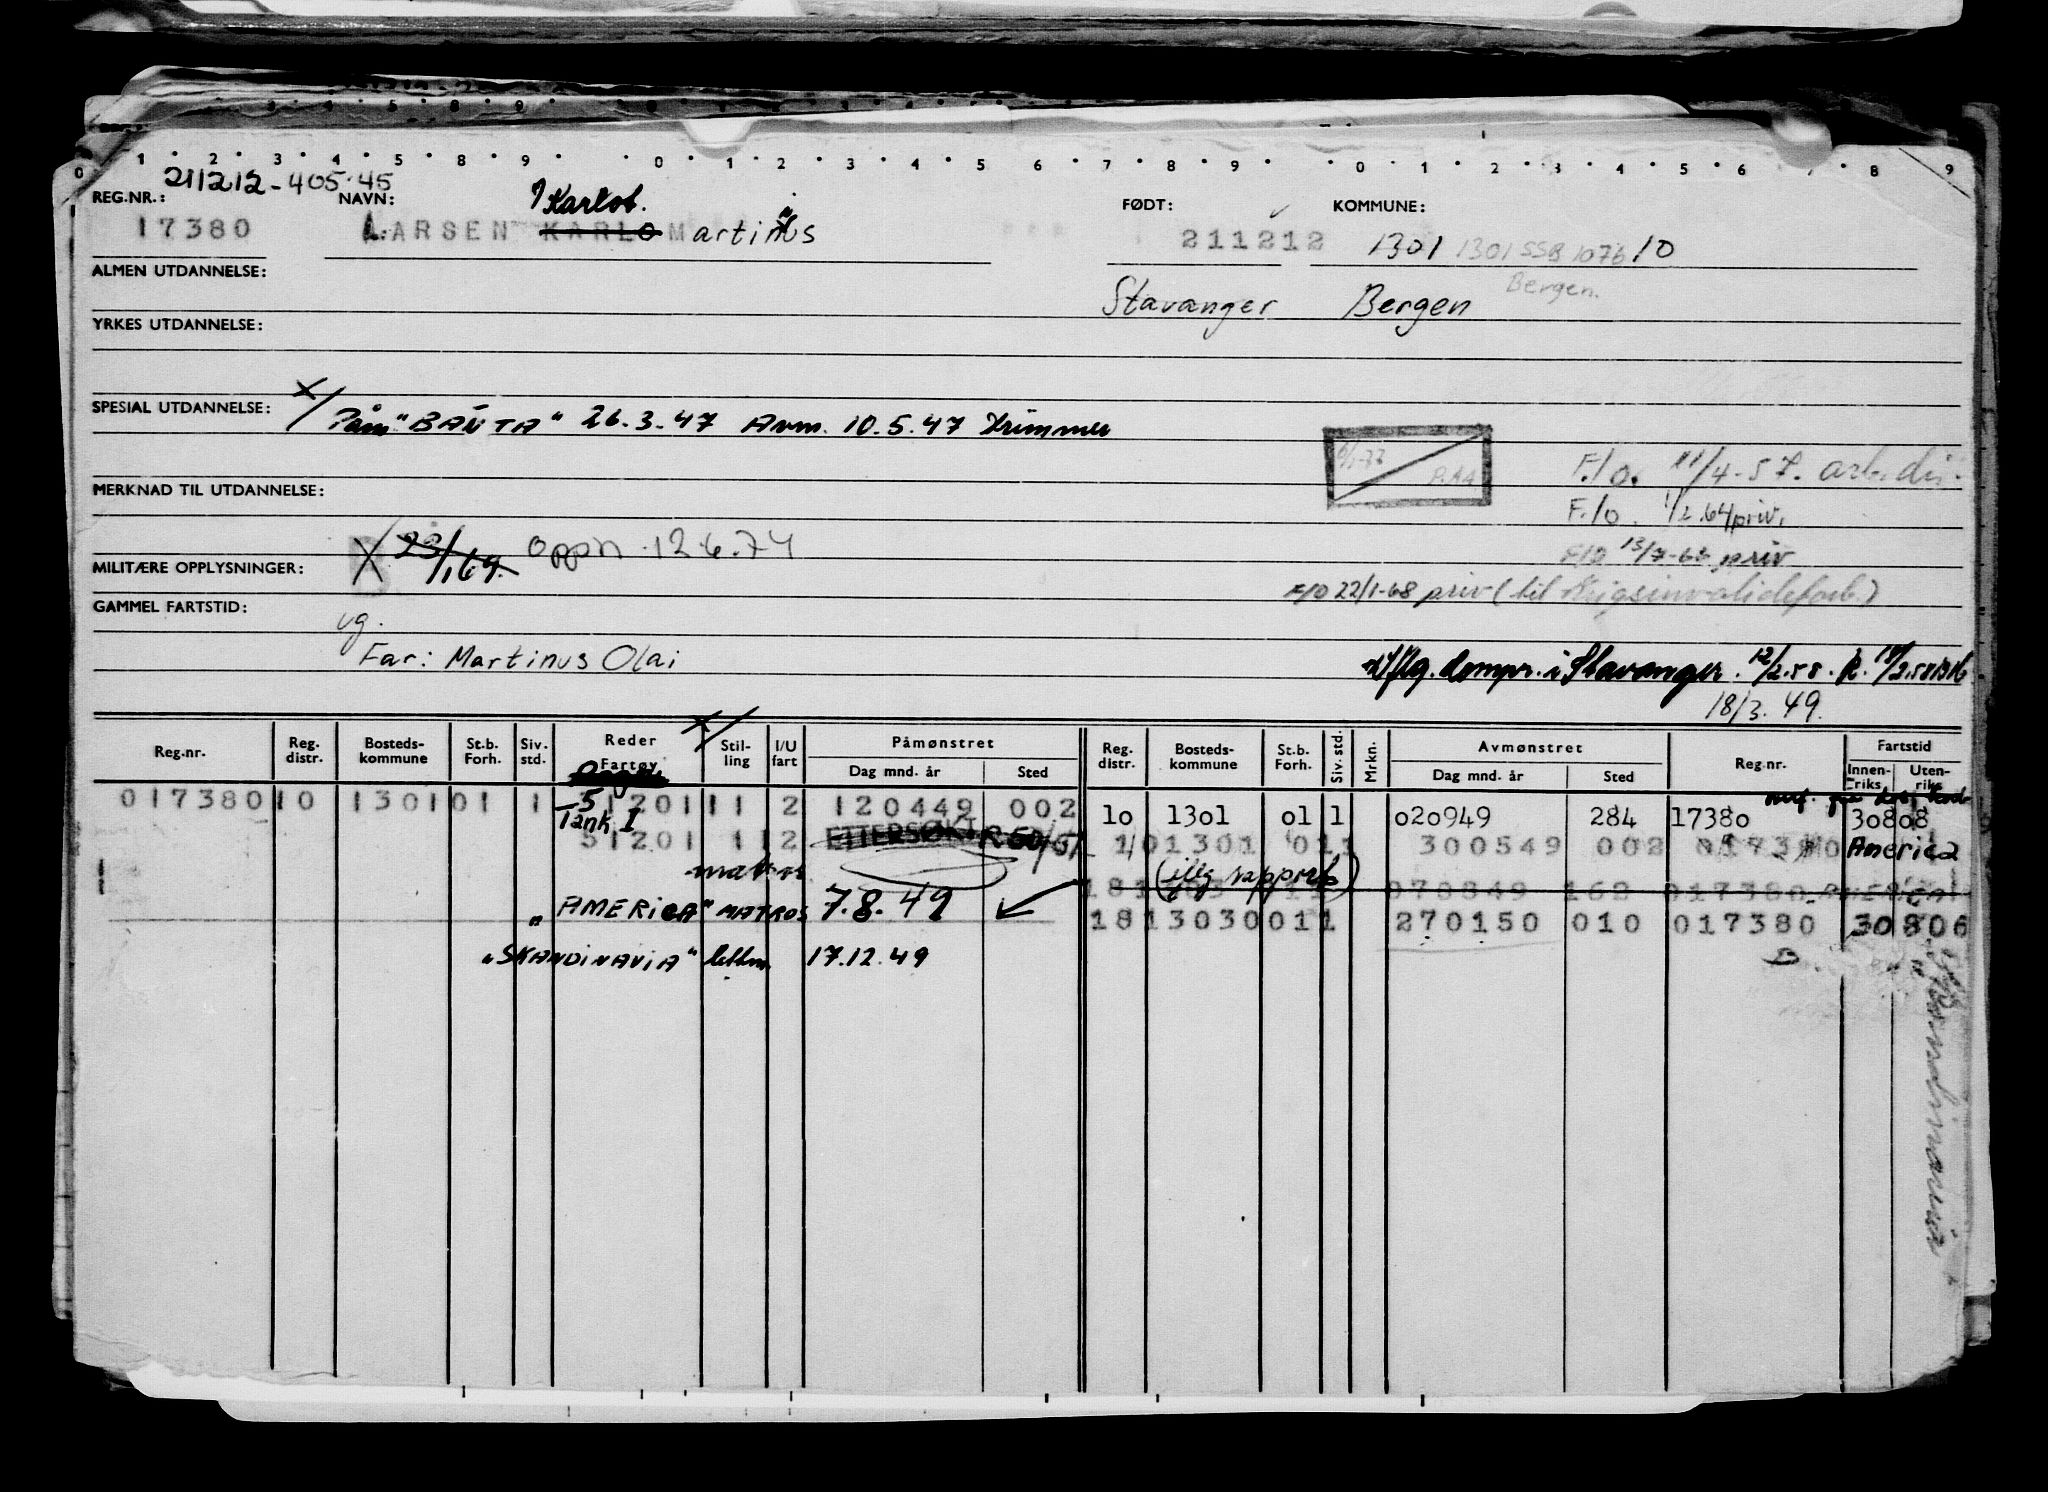 0 1 2 3 4 5 8 9 0 1 2 3 4 5 6 7 8 9 0 1 2 3 4 5 6 7 8 9
211212-405.45
REG.NR.: NAVN: Karlot. FØDT: KOMMUNE:
17380 LARSEN KARLO Martinus 211212 1301 1301 SSB 1076 10
ALMEN UTDANNELSE: Bergen.
Stavanger Bergen
YRKES UTDANNELSE:
SPESIAL UTDANNELSE: x/ Påm "BANTA" 26.3.47 Avm. 10.5.47 Trimmer
F/o. 11/4-57.
MERKNAD TIL UTDANNELSE:
F/o. 1/2.64 priv.
X 23/169. Oppn 12.6.74
F/O 13/7-63 priv
MILITÆRE OPPLYSNINGER:
F/O 22/1-68 priv (til Krigsinvalideforb.)
GAMMEL FARTSTID:
vg.
Far: Martinus Olai
i Stavanger. 12/2.58. R. 18/2.58
18/3. 49.
Reg.nr. Reg. distr. Bosteds-kommune St.b. Forh. Siv. std. Reder Fartøy x/ Stil-ling I/U fart Påmønstret Dag mnd. år Sted Reg. distr. Bosteds-kommune St.b. Forh. Siv. std. Mrkn. Avmønstret Dag mnd. år Sted Reg.nr. Fartstid Innen-riks Uten-riks
017380 10 1301 01 1 51201 11 2 120449 002 10 1301 01 1 020949 284 17380 30808
Tank I
51201 11 2 ETTERSØKT R 50/51 10 1301 01 1 300549 002 017380 America
matros (illg rapport)
070849 162 017380
"AMERICA" MATROS 7.8.49 18 1303 001 1 270150 010 017380 30806
"SKANDINAVIA" lettm. 17.12.49
Skandinavia